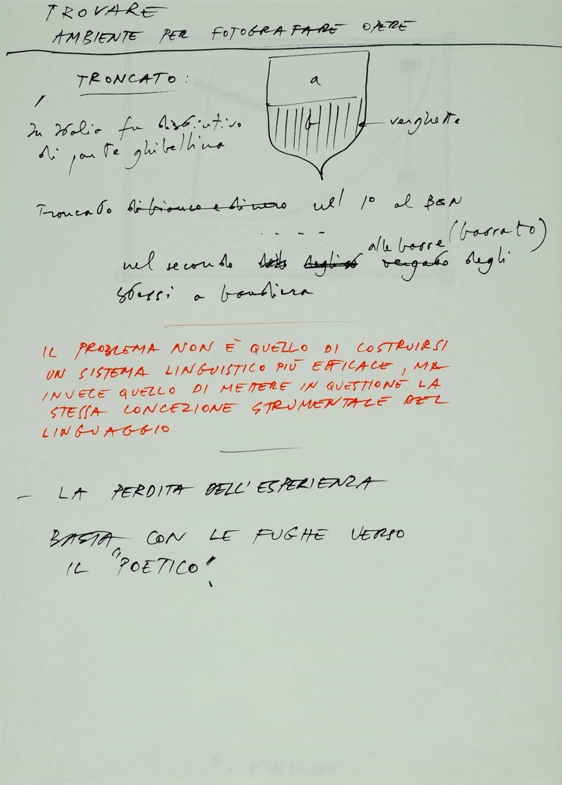 TROVARE
AMBIENTE PER FOTOGRAFARE OPERE
TRONCATO:
a
In Italia fu distintivo
b
verghette
di parte ghibellina
Troncato di bianco e di nero nel 1° al B&N
. . . .
alle barre (barrato)
nel secondo degli vergato degli
stessi a bandiera
IL PROBLEMA NON È QUELLO DI COSTRUIRSI
UN SISTEMA LINGUISTICO PIÙ EFFICACE, MA
INVECE QUELLO DI METTERE IN QUESTIONE LA
STESSA CONCEZIONE STRUMENTALE DEL
LINGUAGGIO
– LA PERDITA DELL'ESPERIENZA
BASTA CON LE FUGHE VERSO
IL "POETICO"!